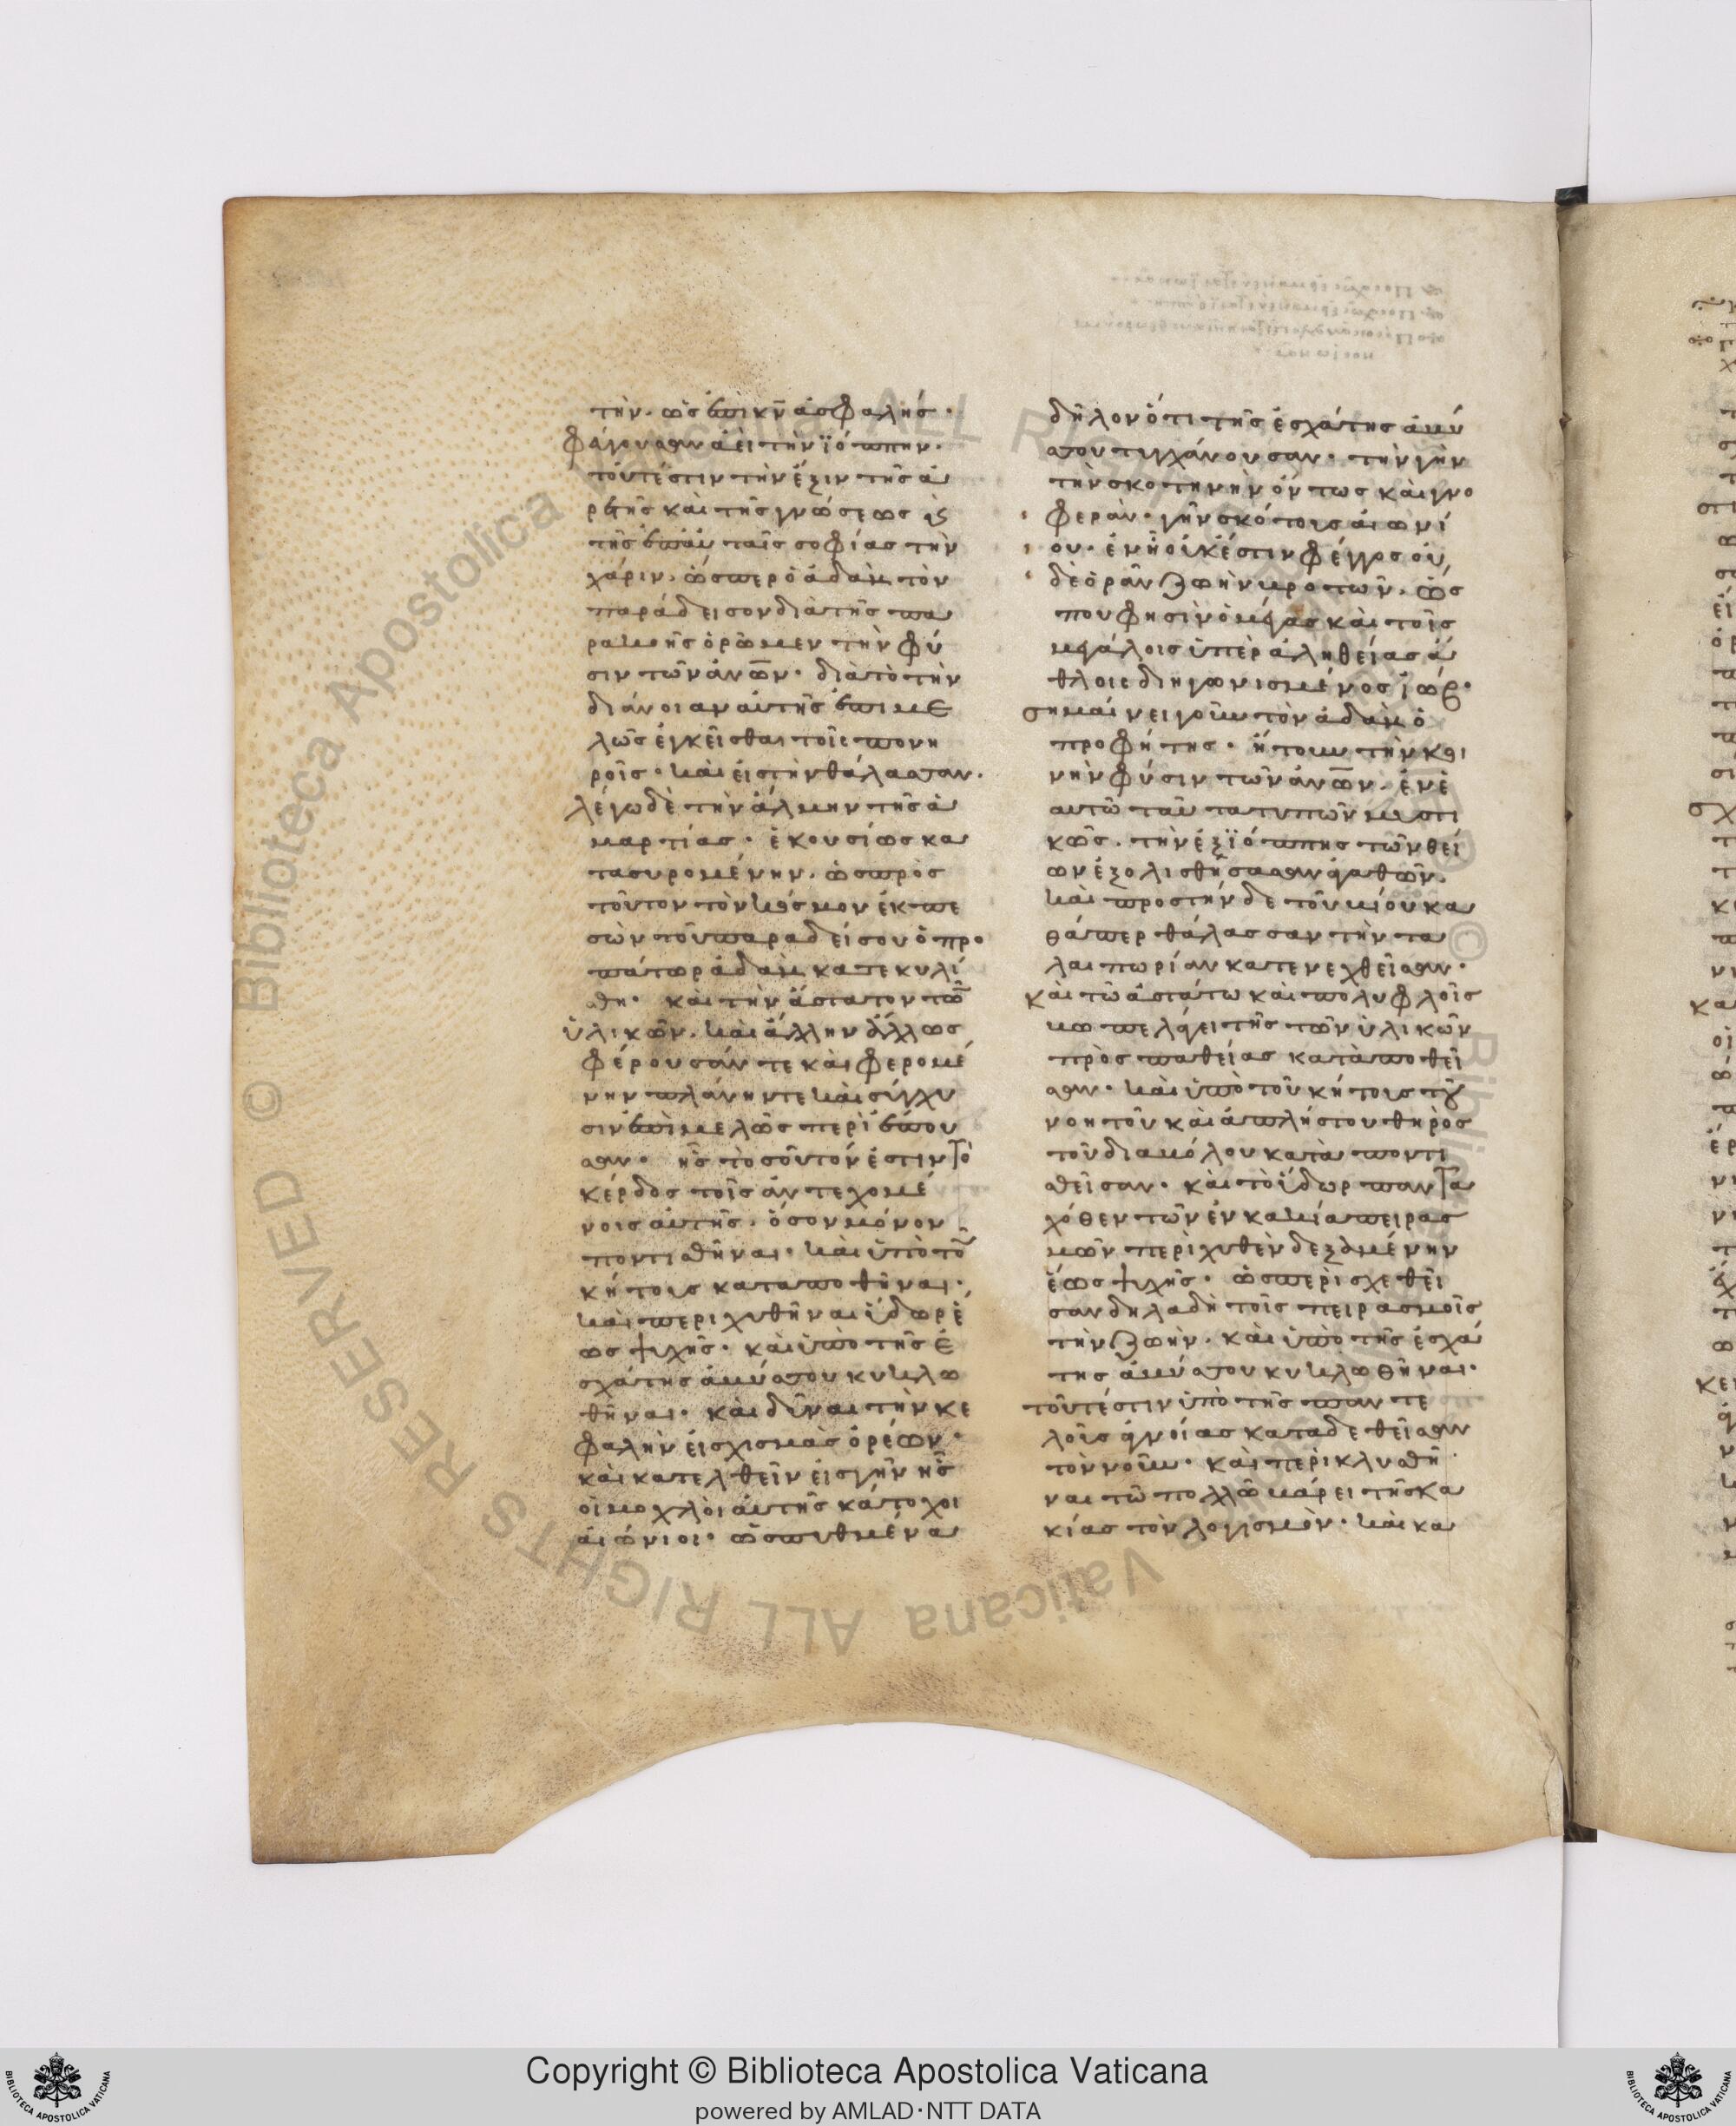 την. ὡς ἐπισκην ἀσφαλής·
φεύγουσαν ἀεὶ τὴν ϊόππην·
τουτέστιν τὴν ἕξιν τῆς ἀ
ρετῆς καὶ τῆς γνώσεως κς
τῆς ἐπ' αὐταῖς σοφίας τὴν
χάριν. ὥσπερ ὁ ἀδὰμ τὸν
παράδεισον διὰ τῆς πα
ρακοῆς ὁρῶμεν τὴν φύ
σιν τῶν ἀνων· διὰ τὸ τὴν
διάνοιαν αὐτῆς ἐπιμε
λῶς ἐγκεῖσθαι τοῖς πονη
ροῖς· καὶ εἰς τὴν θάλασσαν·
λέγω δὲ τὴν ἅλμην τῆς ἁ
μαρτίας· ἑκουσίως κα
τασυρομένην. ὡς πρὸς
τοῦτον τὸν κόσμον ἐκπε
σὼν τοῦ παραδείσου ὁ προ
πάτωρ ἀδὰμ κατεκυλί
σθη· καὶ τὴν ἄστατον τῶν
ὑλικῶν. καὶ ἄλλην ἄλλως
φέρουσάν τε καὶ φερομέ
νην πλάνην τε καὶ σύγχυ
σιν ἐπιμελῶς περιέπου
σαν· ἧς τοσοῦτόν ἐστιν τὸ
κέρδος τοῖς ἀντεχομέ
νοις αὐτῆς· ὅσον μόνον
ποντισθῆναι· καὶ ὑπὸ τοῦ
κήτους καταποθῆναι·
καὶ περιχυθῆναι ὕδωρ ἕ
ως ψυχῆς· καὶ ὑπὸ τῆς ἐ
σχάτης ἀβύσσου κυκλω
θῆναι· καὶ δῦναι τὴν κε
φαλὴν εἰς σχισμὰς ὀρέων·
καὶ κατελθεῖν εἰς γῆν ἧς
οἱ μοχλοὶ αὐτῆς κάτοχοι
αἰώνιοι· ὡς πυθμένα
δηλονότι τῆς ἐσχάτης ἀβύ
σσου τυγχάνουσαν· τὴν γῆν
τὴν σκοτηνὴν ὄντως καὶ γνο
φεράν· γῆν σκότους αἰωνί
ου· ἐν ᾗ οὐκ ἔστιν φέγγος οὐ
δὲ ὁρᾶν ζωὴν βροτῶν. ὥς
που φησὶν ὁ μέγας καὶ τοῖς
μεγάλοις ὑπὲρ ἀληθείας ἄ
θλοις διηγωνισμένος ἰώβ·
σημαίνει γοῦν τὸν ἀδὰμ ὁ
προφήτης· ἤγουν τὴν κοι
νὴν φύσιν τῶν ἀνων. ἐν ἑ
αυτῶ ταύτα τυπῶν μυστι
κῶς. τὴν ἐξ ϊόππης τῶν θεί
ων ἐξολισθήσασαν ἀγαθῶν.
καὶ πρὸς τήνδε τοῦ βίου κα
θάπερ θάλασσαν τὴν τα
λαιπωρίαν κατενεχθεῖσαν·
καὶ τῶ ἀστάτω καὶ πολυφλοίς
βω πελάγει τῆς τῶν ὑλικῶν
πρὸς παθείας καταποθεῖ
σαν· καὶ ὑπὸ τοῦ κήτους τοῦ
νοητοῦ καὶ ἀπλήστου θηρὸς
τοῦ διαβόλου καταποντι
σθεῖσαν· καὶ τὸ ὕδωρ παντα
χόθεν τῶν ἐν κακία πειρας
μῶν περιχυθὲν δεξαμένην
ἕως ψυχῆς· ὡς περισχεθεῖ
σαν δηλαδὴ τοῖς πειρασμοῖς
τὴν ζωὴν. καὶ ὑπὸ τῆς ἐσχά
της ἀβύσσου κυκλωθῆναι·
τουτέστιν ὑπὸ τῆς παντε
λοῦς ἀγνοίας καταδεθεῖσαν
τὸν νοῦν· καὶ περικλυσθῆ
ναι τῶ πολλῶ βάρει τῆς κα
κίας τὸν λογισμὸν· καὶ κα
Copyright © Biblioteca Apostolica Vaticana
powered by AMLAD·NTT DATA